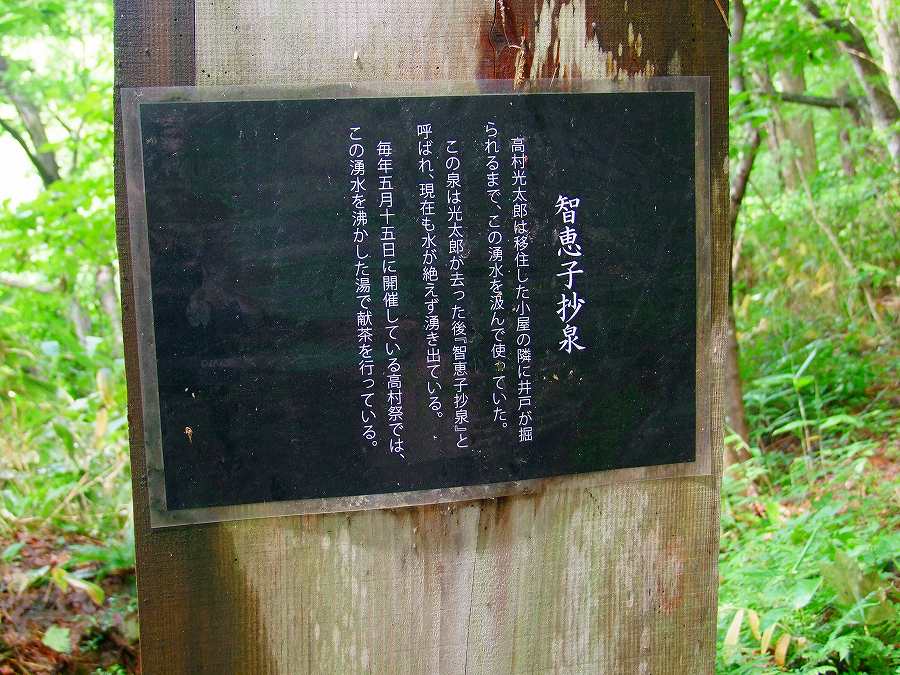 智恵子抄泉
高村光太郎は移住した小屋の隣に井戸が掘
られるまで、この湧水を汲んで使っていた。
この泉は光太郎が去った後『智恵子抄泉』と
呼ばれ、現在も水が絶えず湧き出ている。
毎年五月十五日に開催している高村祭では、
この湧水を沸かした湯で献茶を行っている。